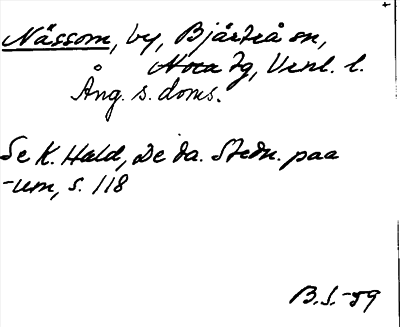 Nässom, by, Bjärtrå sn,
Nora tg, Vnl. l.
Ång. s. doms.
Se K. Hald, De da. Stedn. paa
-um, s. 118
B.S.-59